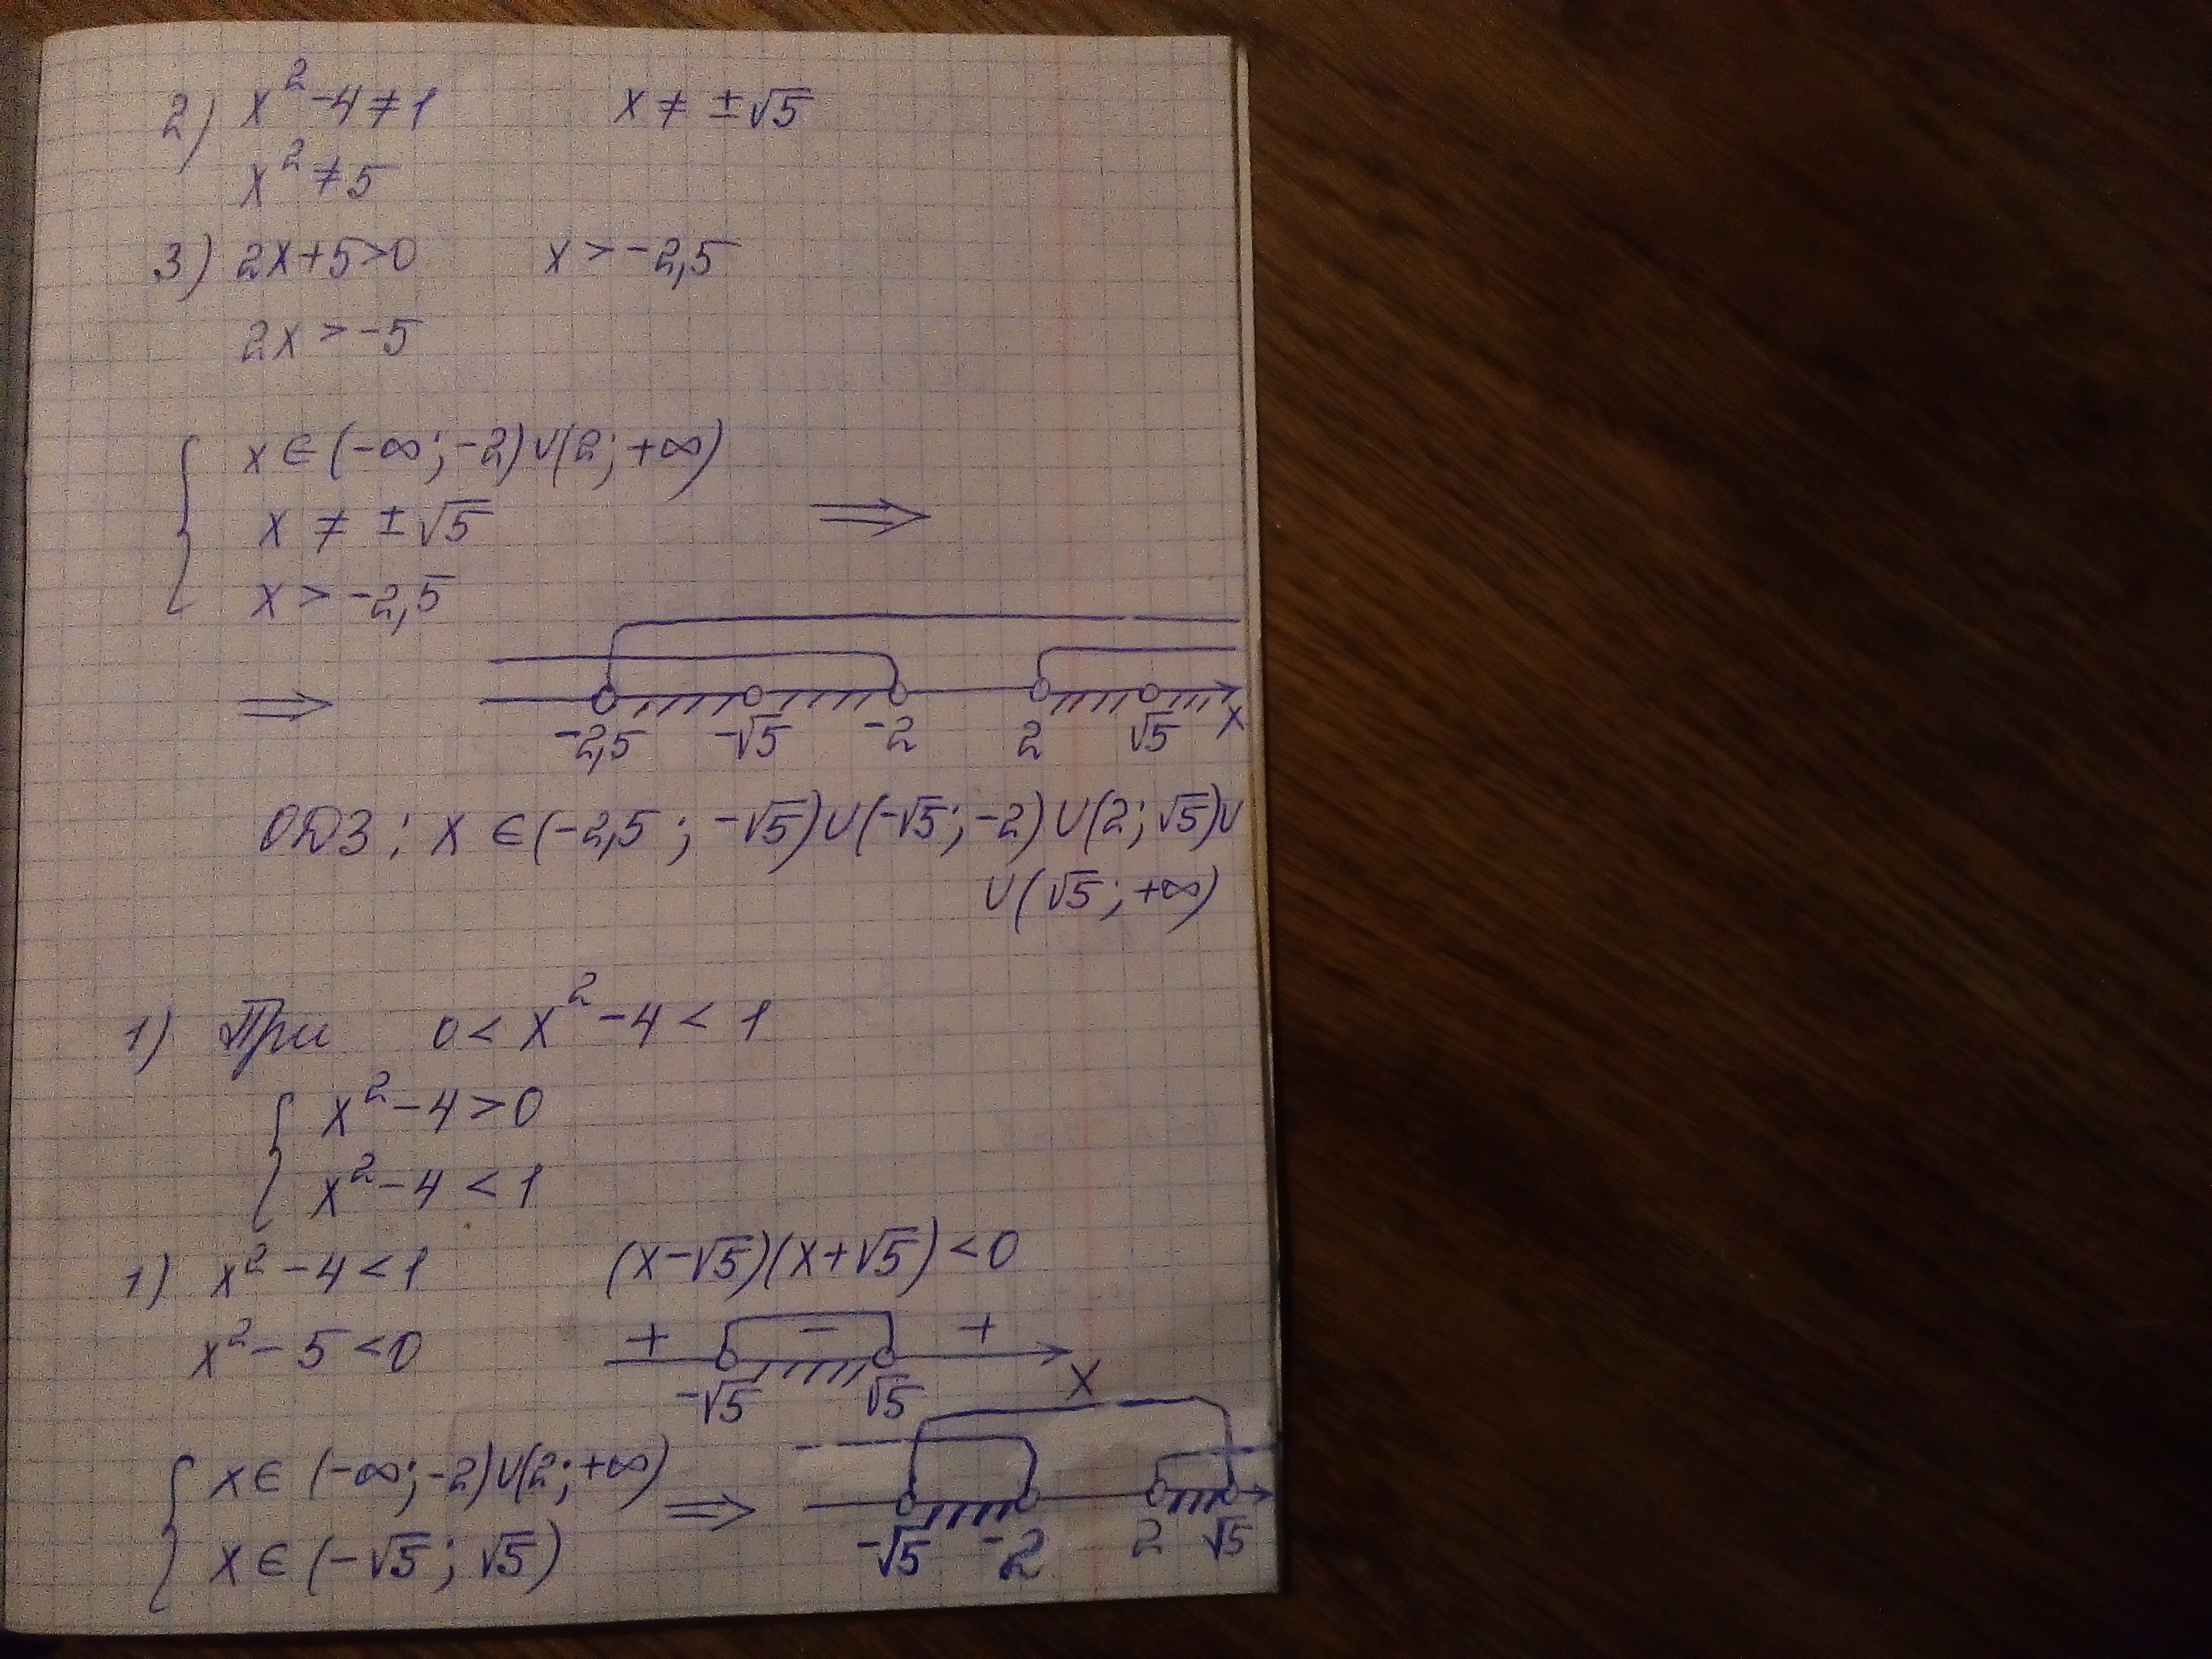 2) x² - 4 ≠ 1 x ≠ ±√5
x² ≠ 5
3) 2x + 5 > 0 x > -2,5
2x > -5
{ x ∈ (-∞; -2) ∪ (2; +∞)
x ≠ ±√5 ⟹
x > -2,5
⟹ -2,5 -√5 -2 2 √5 x
ОДЗ: x ∈ (-2,5; -√5) ∪ (-√5; -2) ∪ (2; √5) ∪
∪ (√5; +∞)
1) При 0 < x² - 4 < 1
{ x² - 4 > 0
x² - 4 < 1
1) x² - 4 < 1 (x - √5)(x + √5) < 0
x² - 5 < 0 + - +
-√5 √5 x
{ x ∈ (-∞; -2) ∪ (2; +∞) ⟹
x ∈ (-√5; √5) -√5 -2 2 √5